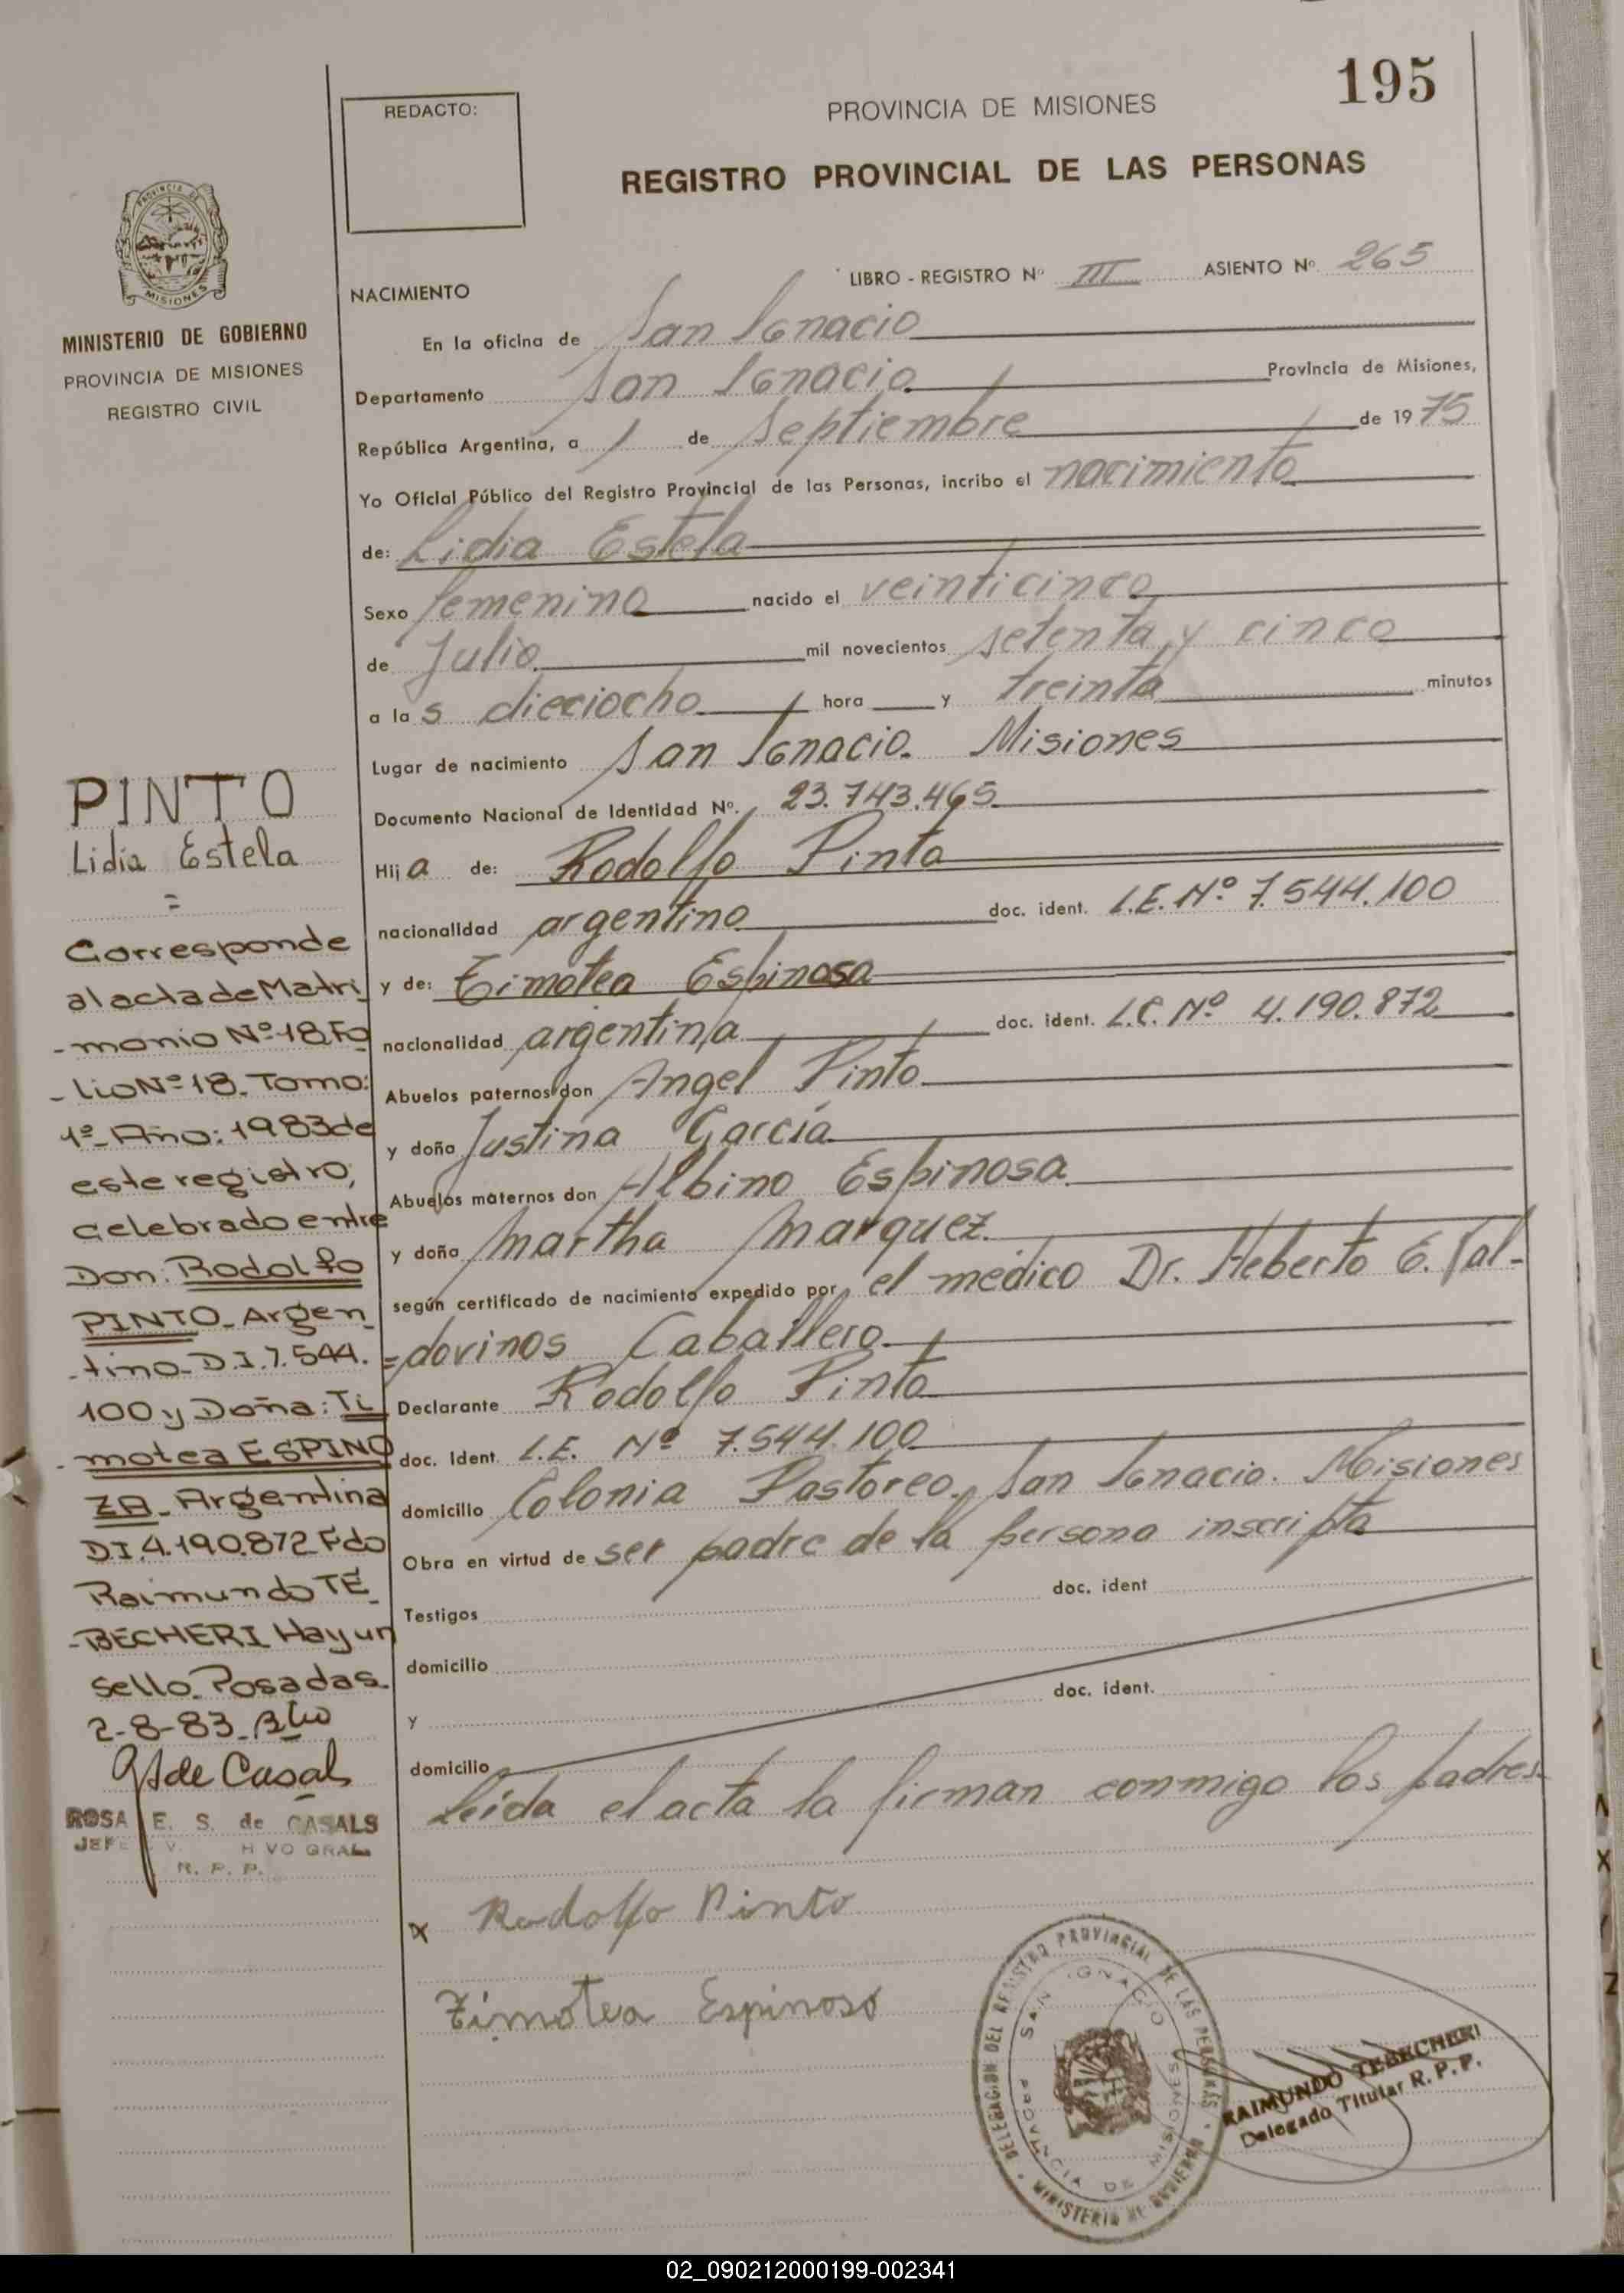 195
REDACTO:
PROVINCIA DE MISIONES
REGISTRO PROVINCIAL DE LAS PERSONAS
PROVINCIA DE
MISIONES
MINISTERIO DE GOBIERNO
PROVINCIA DE MISIONES
REGISTRO CIVIL
LIBRO - REGISTRO Nº III ASIENTO Nº 265
NACIMIENTO
En la oficina de San Ignacio
Departamento San Ignacio Provincia de Misiones,
República Argentina, a 1 de Septiembre de 1975
Yo Oficial Público del Registro Provincial de las Personas, incribo el nacimiento
de: Lidia Estela
Sexo femenino nacido el veinticinco
de Julio mil novecientos setenta y cinco
a las dieciocho hora y treinta minutos
Lugar de nacimiento San Ignacio. Misiones
Documento Nacional de Identidad Nº. 23.743.465
Hija de: Rodolfo Pinto
nacionalidad argentino doc. ident. L.E. Nº 7.544.100
y de: Timotea Espinosa
nacionalidad argentina doc. ident. L.C. Nº 4.190.872
Abuelos paternos don Angel Pinto
y doña Justina García
Abuelos maternos don Albino Espinosa
y doña Martha Marquez
según certificado de nacimiento expedido por el médico Dr. Heberto E. Val-
=dovinos Caballero
Declarante Rodolfo Pinto
doc. Ident. L.E. Nº 7.544.100
domicilio Colonia Pastoreo. San Ignacio. Misiones
Obra en virtud de ser padre de la persona inscripta
Testigos doc. ident
domicilio
y doc. ident.
domicilio
Leída el acta la firman conmigo los padres
x Rodolfo Pinto
Timotea Espinoso
DELEGACION DEL REGISTRO PROVINCIAL DE LAS PERSONAS
MINISTERIO DE GOBIERNO
SAN IGNACIO
PROVINCIA DE MISIONES
RAIMUNDO TEBECHERI
Delegado Titular R. P. P.
PINTO
Lidia Estela
=
Corresponde
al acta de Matri
-monio Nº 18 Fo
-lio Nº 18. Tomo:
1º- Año: 1983 de
este registro,
celebrado entre
Don: Rodolfo
PINTO. Argen
-tino- D.I. 7.544.
100 y Doña: Ti
-motea ESPINO
ZA. Argentina
D.I. 4.190.872 Fdo
Raimundo TE
-BECHERI Hay un
sello. Posadas.
2-8-83.
de Casals
ROSA E. S. de CASALS
R. P. P.
02_090212000199-002341